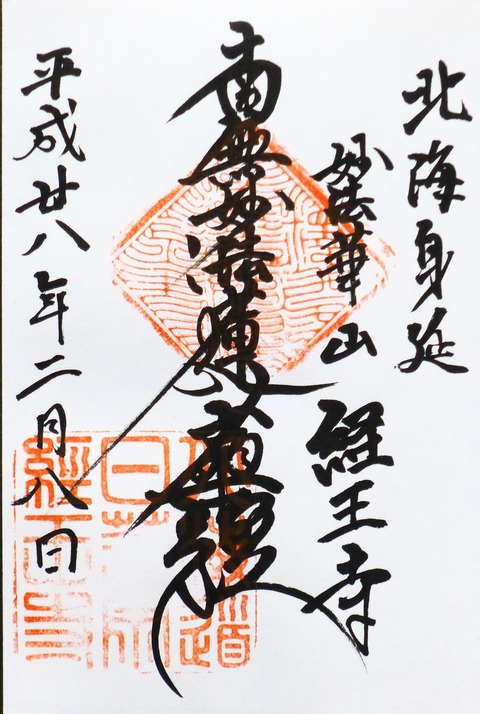 北海身延
妙法華山
経王寺
南無妙法蓮華経
平成廿八年二月八日